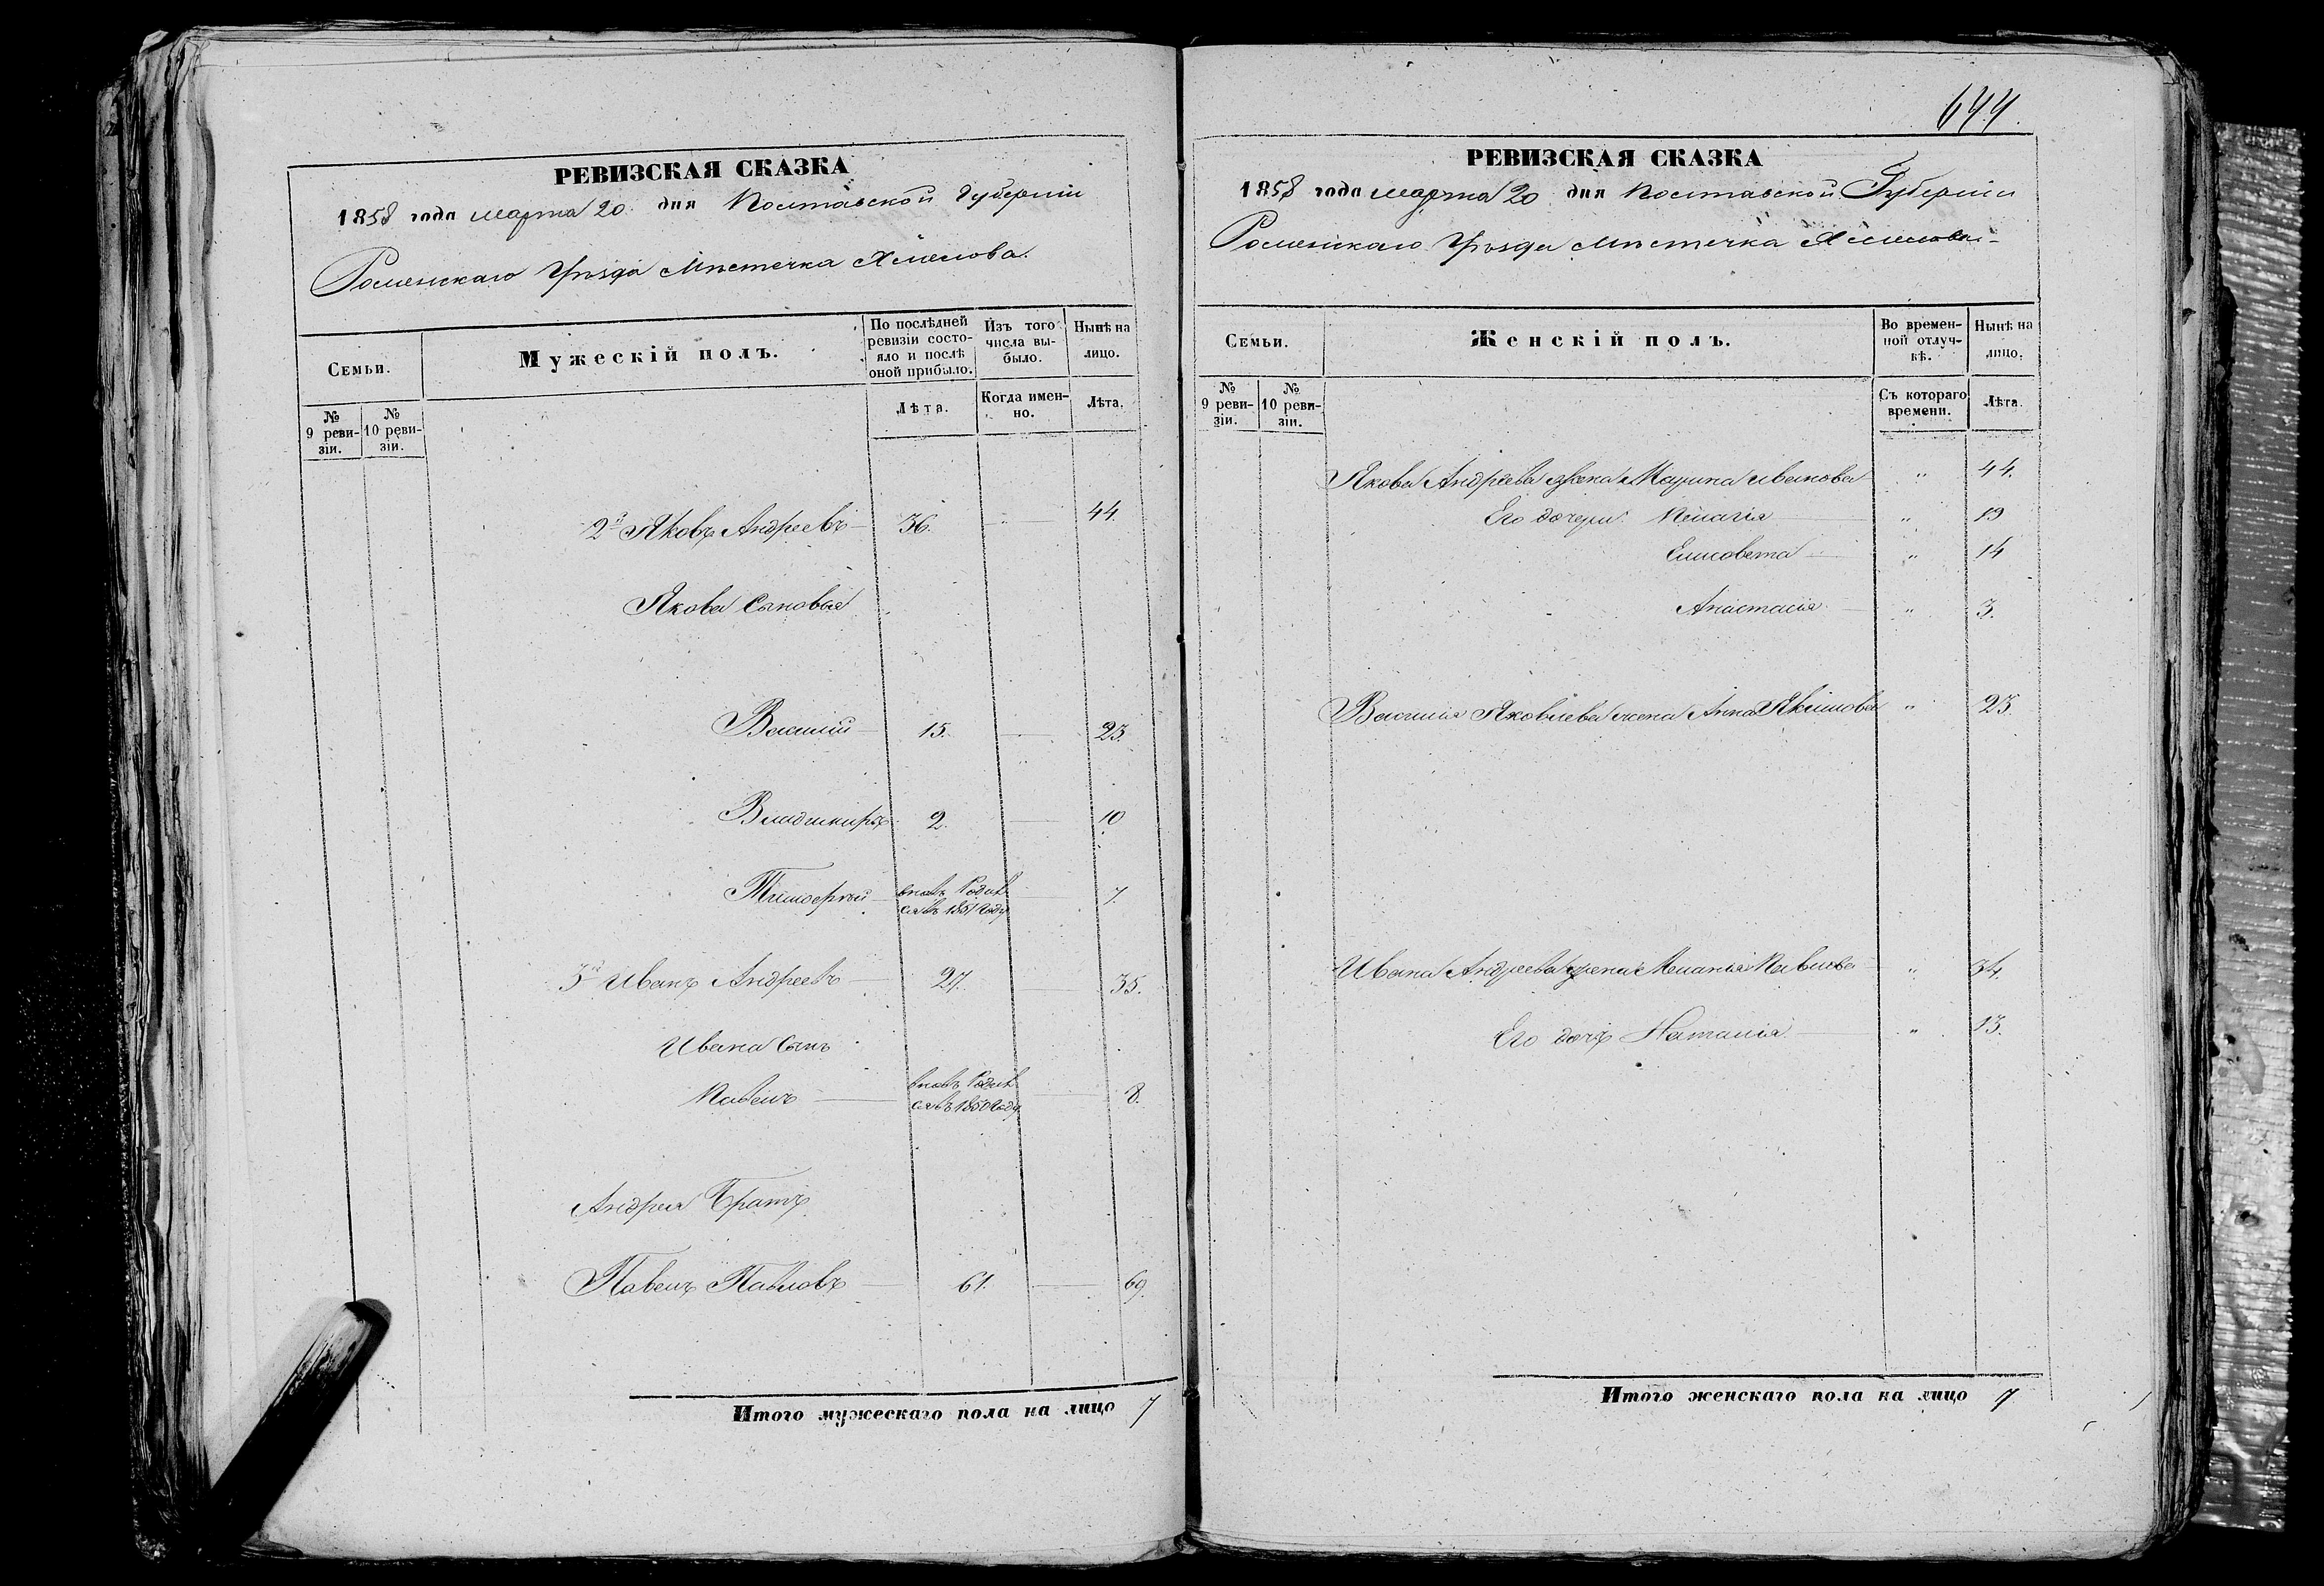 РЕВИЗСКАЯ СКАЗКА
1858 года марта 20 дня Полтавской Губерніи
Роменскаго Уѣзда Мѣстечка Хмелова.
Семьи.
Мужескій полъ.
По послѣдней ревизіи состояло и послѣ оной прибыло.
Изъ того числа выбыло.
Нынѣ на лицо.
№ 9 ревизіи.
№ 10 ревизіи.
Лѣта.
Когда именно.
Лѣта.
2й Яковъ Андреевъ — 36. " 44.
Якова Сыновья
Василий — 15. — 23.
Владимиръ 2. — 10
Тимофѣй — вновь Родил
ся въ 1851 году — 7.
3й Иванъ Андреевъ — 27. — 35.
Ивана Сынъ
Павелъ — вновь Родил
ся въ 1850 году — 8.
Андрея Братъ
Павелъ Павловъ — 61. — 69.
Итого мужескаго пола на лицо 7
644.
РЕВИЗСКАЯ СКАЗКА
1858 года марта 20 дня Полтавской Губерніи
Роменскаго Уѣзда Мѣстечка Хмелова
Семьи.
Женскій полъ.
Во временной отлучкѣ.
Нынѣ на лицо.
№ 9 ревизіи.
№ 10 ревизіи.
Съ котораго времени.
Лѣта
Якова Андреева жена Марина Иванова " 44.
Его дочери Пелагія — " 19
Елисовета — " 14
Анастасія — " 3.
Василия Яковлева жена Анна Якимова " 25.
Ивана Андреева жена Меланья Павлова " 34.
Его дочь Наталия — " 13.
Итого женскаго пола на лицо 7